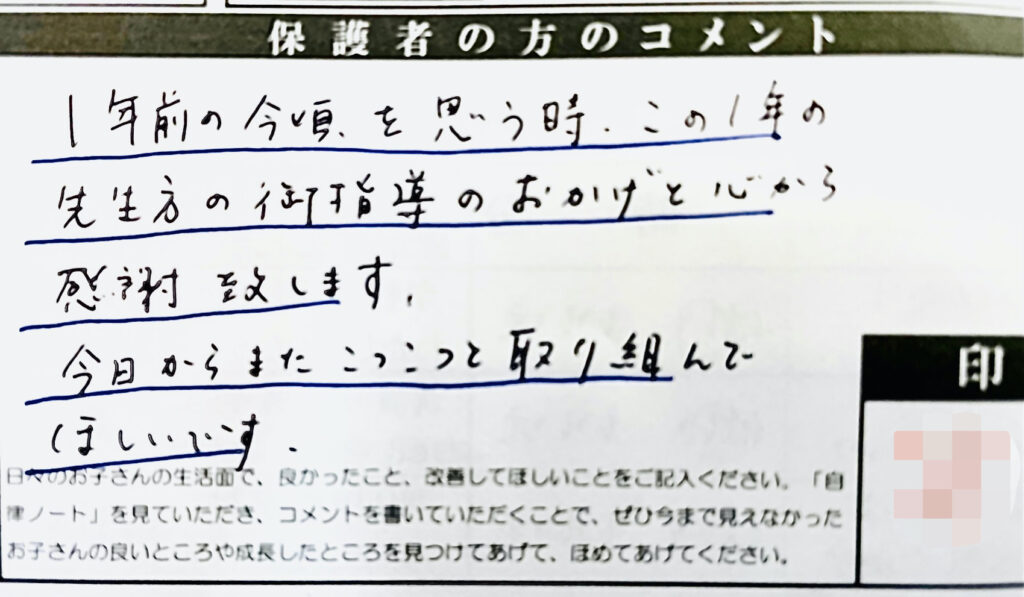 保護者の方のコメント
1年前の今頃を思う時、この1年の
先生方の御指導のおかげと心から
感謝致します。
今日からまたこつこつと取り組んで
ほしいです。
印
日々のお子さんの生活面で、良かったこと、改善してほしいことをご記入ください。「自
律ノート」を見ていただき、コメントを書いていただくことで、ぜひ今まで見えなかった
お子さんの良いところや成長したところを見つけてあげて、ほめてあげてください。